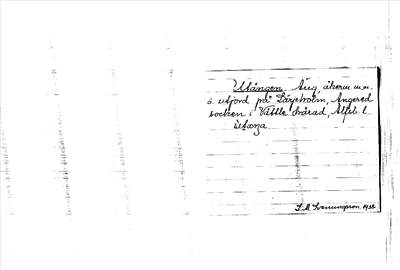 Utängen Äng, åkern m.m.
o. utjord på Lärjeholm, Angered
socken i Vättle härad, Älfsb. l.
Utarya
S. M. Svenungson 1938